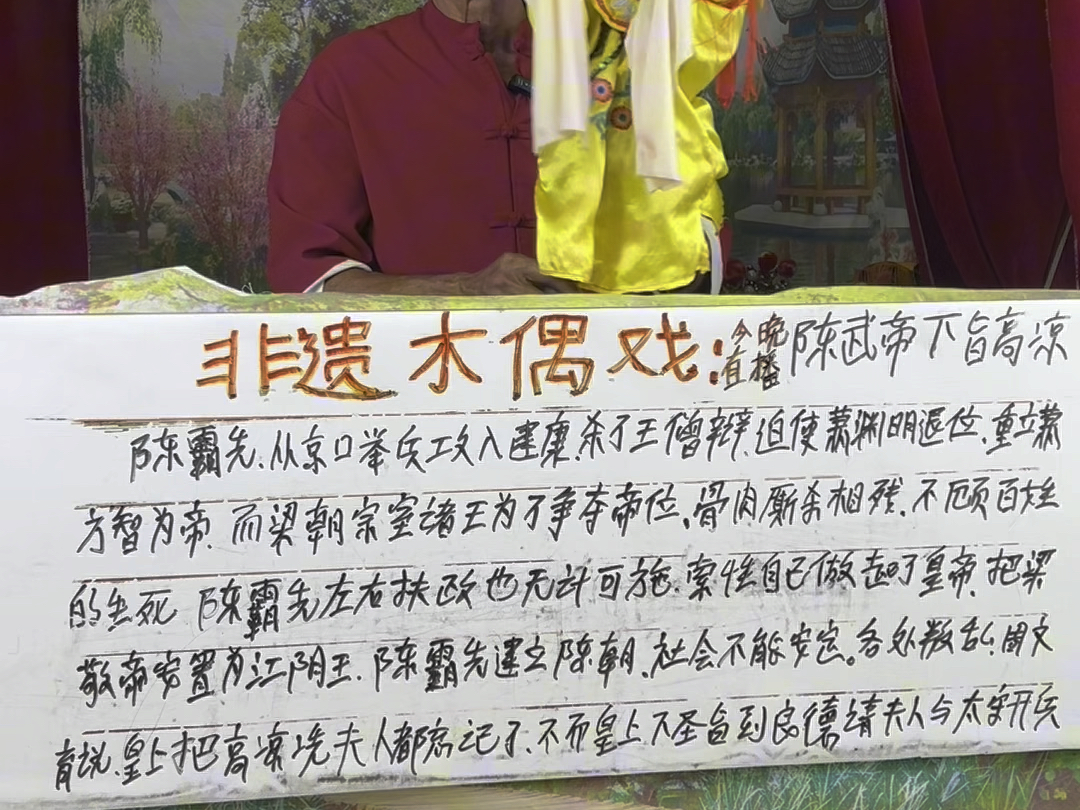 非遗木偶戏:今晚直播陈武帝下旨高凉
陈霸先.从京口举兵攻入建康.杀了王僧辩.迫使萧渊明退位.重立萧
方智为帝.而梁朝宗室诸王为了争夺帝位、骨肉厮杀相残.不顾百姓
的生死 陈霸先左右扶政也无计可施.索性自己做起了皇帝.把梁
敬帝安置为江阴王.陈霸先建立陈朝.社会不能安定。各处叛乱.周文
育说.皇上把高凉冼夫人都忘记了.不而皇上下圣旨到良德请夫人与太守开兵